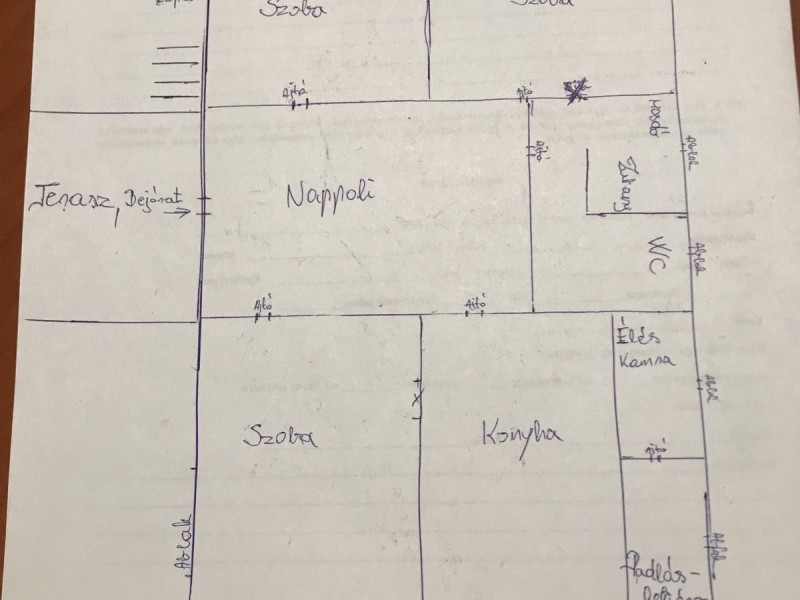 Szoba
Szoba
Ajtó
Ajtó
Mosdó
Ablak
Ajtó
Zuhany
Terasz, Bejárat
Nappoli
WC
Ablak
Ajtó
Ajtó
Élés
Kamra
Ablak
Szoba
Konyha
Ajtó
Ablak
Ablak
Padlás-